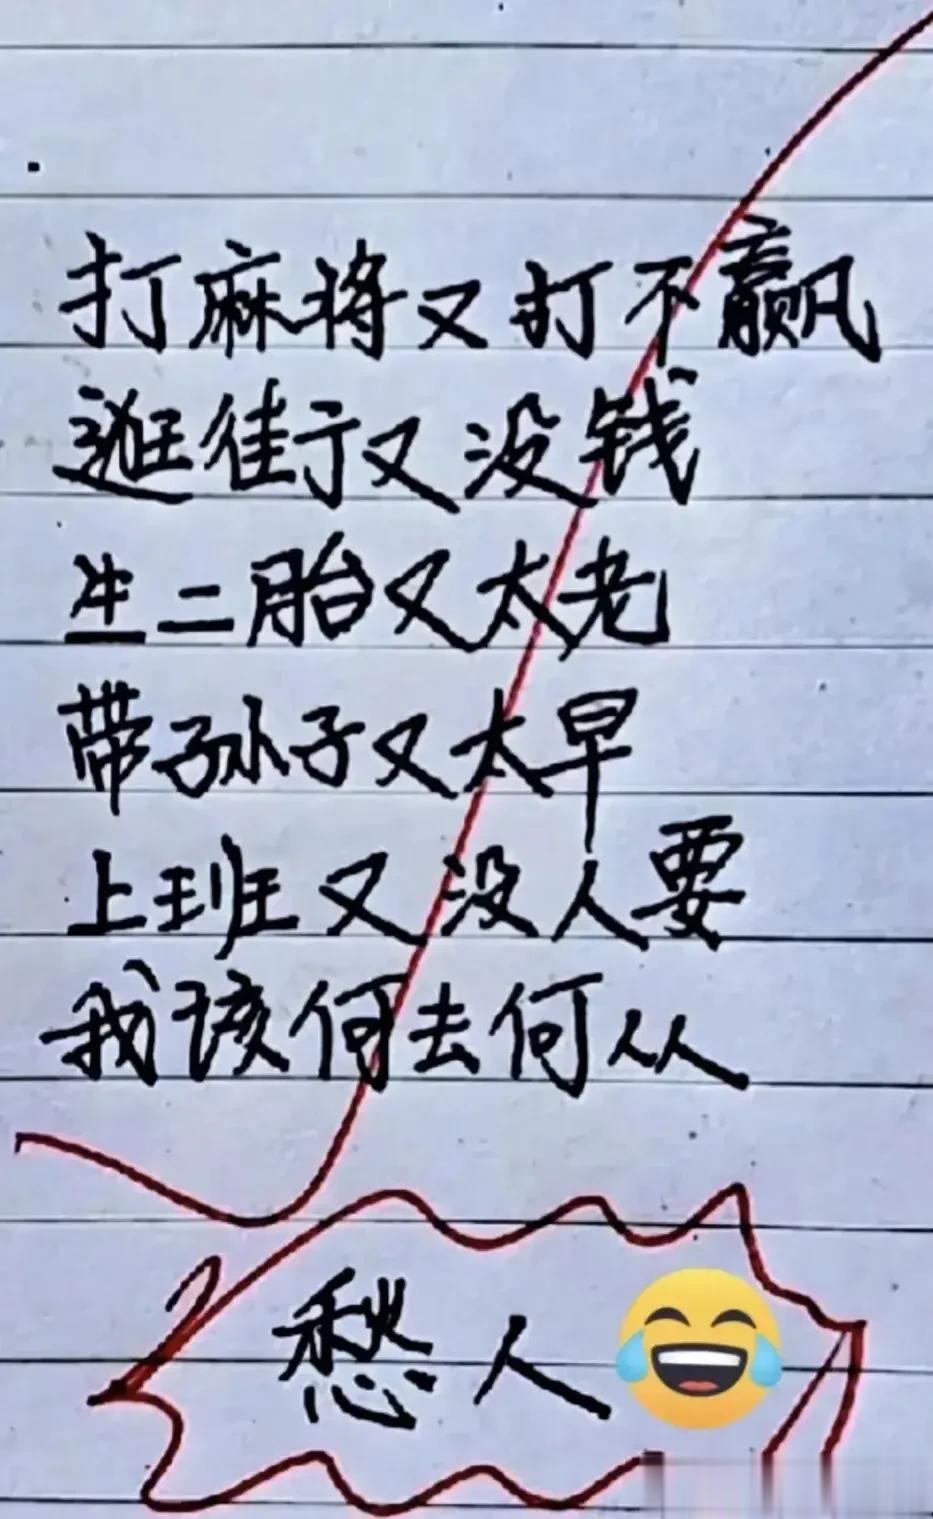 打麻将又打不赢
逛街又没钱
生二胎又太老
带孙子又太早
上班又没人要
我该何去何从
愁人